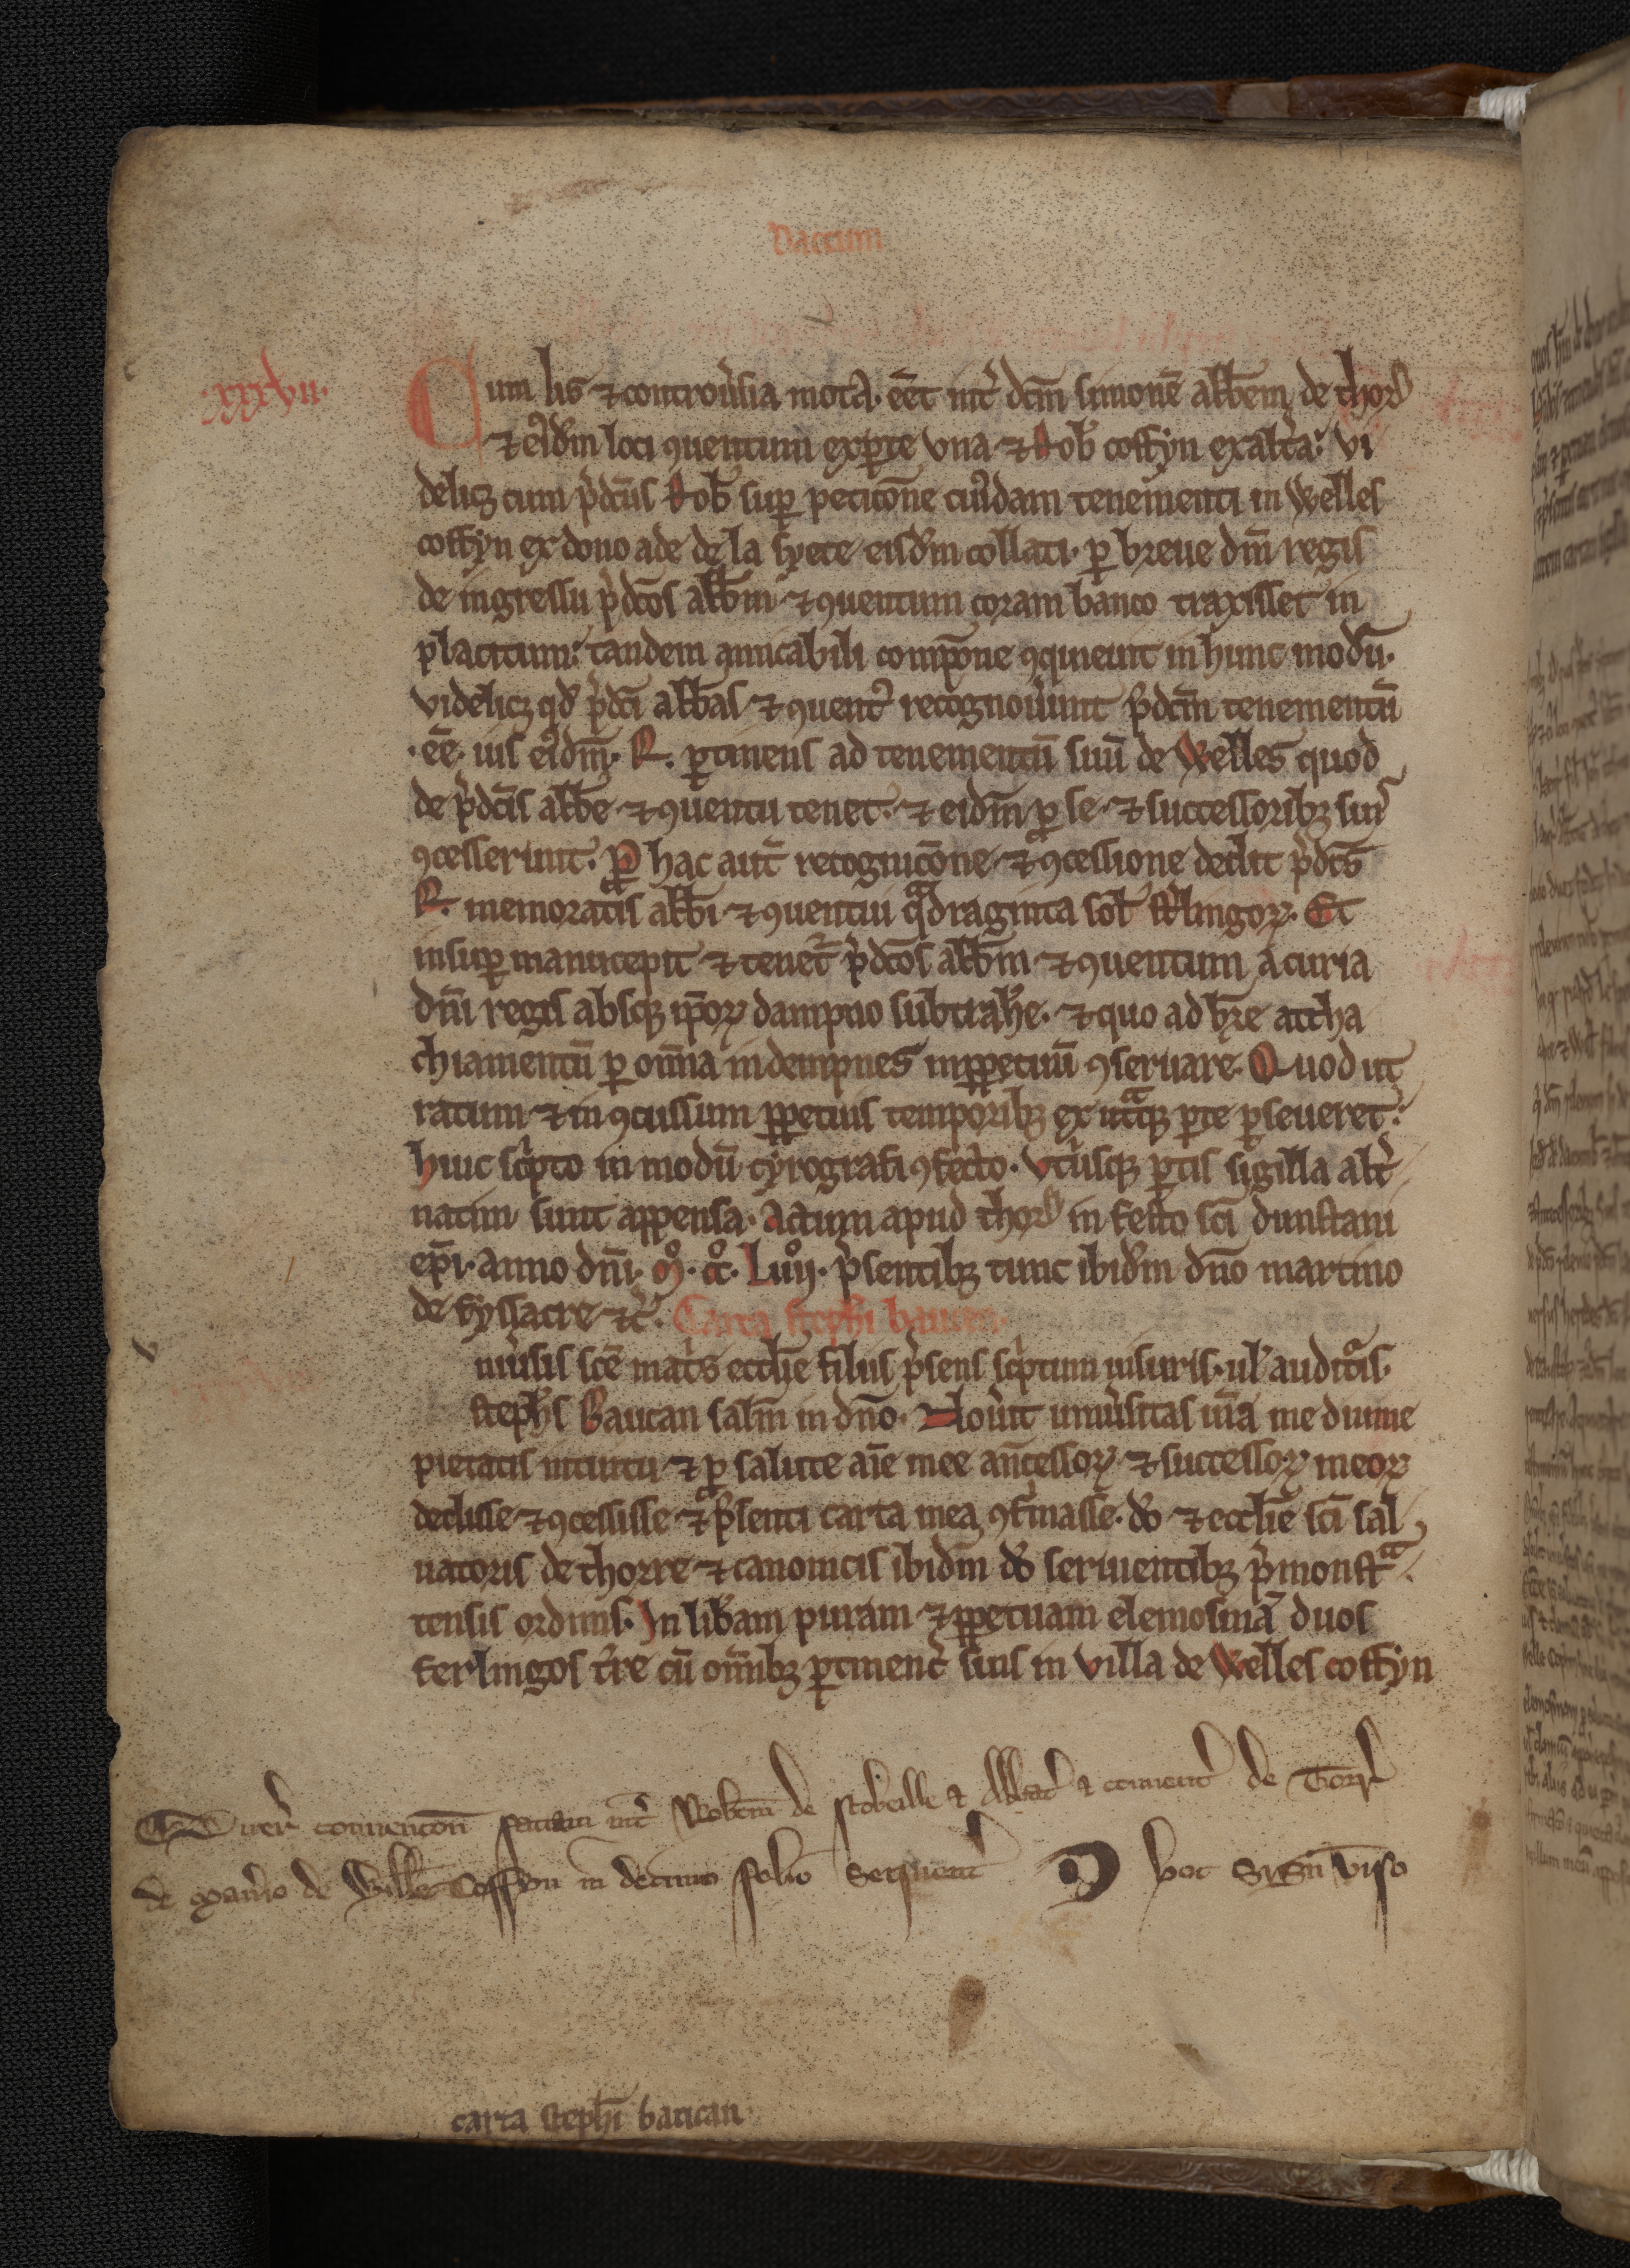 Pactum
xxxvii.
Cum lis ⁊ controu̾sia mota. eēt int̾ dn̄m simonē abb̄em de thorr̾
⁊ eiꝰd̄m loci ꝯuentum ex ꝑte vna ⁊ Rob̾ coffyn ex alt̾a: vi
delicꝫ cum p̾dc̄us Rob̾ suꝑ peticōne cuiꝰdam tenementi in Welles
coffyn ex dono ade de la hyete eisd̄m collati. ꝑ breue dn̄i regis
de ingressu p̾dc̄os abb̄m ⁊ ꝯuentum coram banco traxisset in
placitum: tandem amicabili compōne ꝯquieuit in hunc modū.
videlicꝫ qd̾ p̾dc̄i abbas ⁊ ꝯuent̾ recognou̾unt p̾dc̄m tenementū
.eē. ius eiꝰdm̄. R. ꝑtinens ad tenementū suū de Welles quod
de p̾dc̄is abb̄e ⁊ ꝯuentu tenet. ⁊ eidm̄ ꝑ se ⁊ successoribꝫ suis
ꝯcesserunt. Pro hac aut̄ recognicōne ⁊ ꝯcessione dedit p̾dc̄s
R. memoratis abb̄i ⁊ ꝯuentui qᵃdraginta sol̾ st̾lingoꝝ. Et
insuꝑ manucepit ⁊ tenet̾ p̾dc̄os abb̄m ⁊ ꝯuentum a curia
dn̄i regis absqꝫ ip̄oꝝ dampno subtrah̾e. ⁊ quo ad hr̄e attha
chiamentū ꝑ om̄ia indempnes inꝑpetuū ꝯseruare. Quod ut
ratum ⁊ in ꝯcussum ꝑpetuis temporibꝫ ex utᵃqꝫ ꝑte ꝑseueret:
huic sc̾pto in modū cyrografi ꝯfecto. vt̾usqꝫ ꝑtis sigilla alt̾
natim sunt appensa. Actum apud thorr̾ in festo sc̄i dunstani
ep̄i. anno dn̄i. mͦ. ccͦ. Lviͦj. p̾sentibꝫ tunc ibid̄m dn̄o martino
de fyssacre ⁊c̾. Carta steph̄i baucan.
niu̾sis sc̄e mat̾s eccl̄ie filiis p̾sens sc̾ptum uisuris. ul̾ audit̾is.
steph̾s Baucan sal̄m in dn̄o. Nou̾it uniu̾sitas ur̄a me diuine
pietatis intuitu ⁊ ꝓ salute aīe mee an̄cessoꝝ ⁊ successoꝝ meoꝝ
dedisse ⁊ ꝯcessisse ⁊ p̾senti carta mea ꝯf̾masse. dō ⁊ eccl̄ie sc̄i sal
uatoris de thorre ⁊ canonicis ibid̄m dō seruientibꝫ p̾monstᵃ
tensis ordinis. In lib̾am puram ⁊ ꝑpetuam elemosinā duos
ferlingos t̾re cū om̄ibꝫ ꝑtinenc̾ suis in villa de Welles coffyn
Quer̾ conuencōn̄ factam int̾ Rob̾tm̄ de stobeille ⁊ Abbat̾ ⁊ conuent̾ de Torr̾
de man̾io de Wille Coffyn in decimo folio sequent̾ hoc sygn̄ viso
carta steph̄i baucan